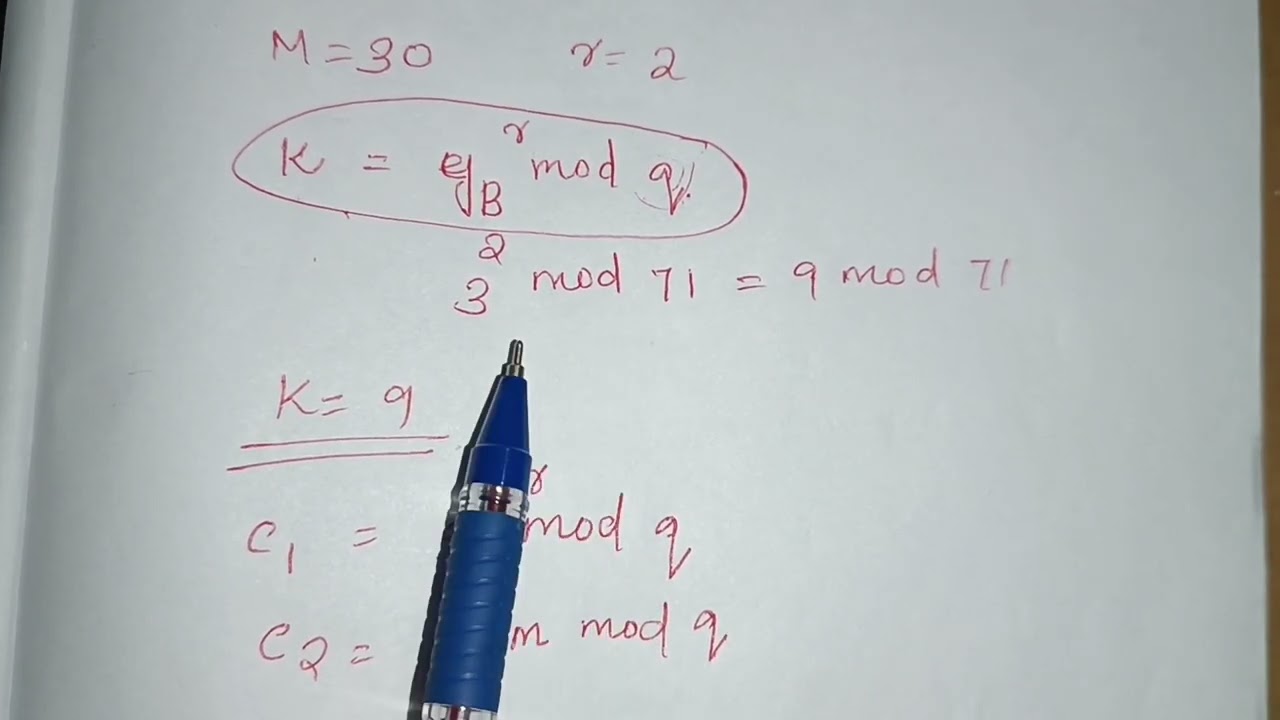 M = 30 r = 2
K = y_B^r mod q
3^2 mod 71 = 9 mod 71
K = 9
C_1 = r mod q
C_2 = m mod q